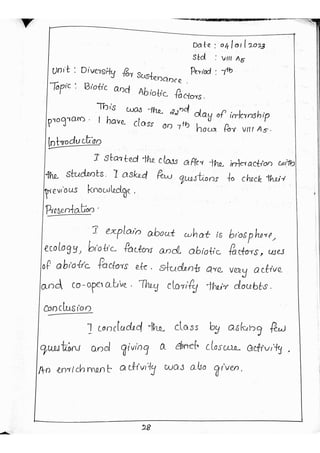 Date : 04/01/2023
Std : VIII A5
Unit : Diversity for Sustenance. Period : 7th
Topic : Biotic and Abiotic factors.
This was the 22nd day of internship
program. I have class on 7th hour for VIII A5.
Introduction
I started the class after the interaction with
the students. I asked few questions to check their
previous knowledge.
Presentation
I explain about what is biosphere,
ecology, biotic factors and abiotic factors, uses
of abiotic factors etc. Students are very active
and co-operative. They clarify their doubts.
Conclusion
I concluded the class by asking few
questions and giving a closure activity.
An enrichment activity was also given.
28